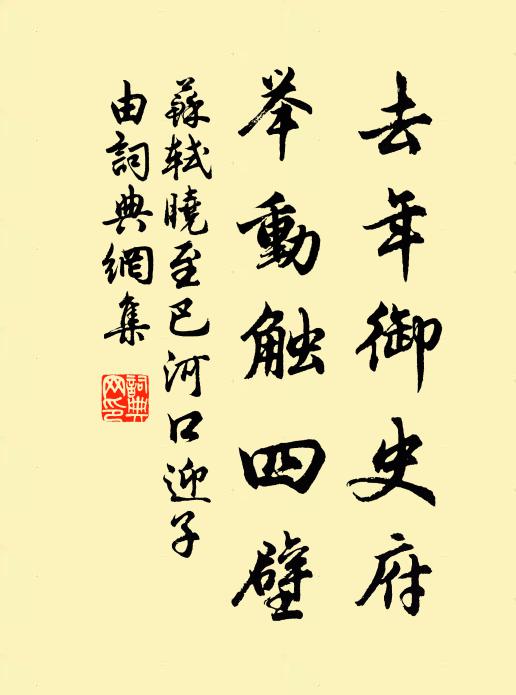 去年御史府
举動触四壁
蘇軾曉至巴河口迎子
由詞典網集
詞典
网印